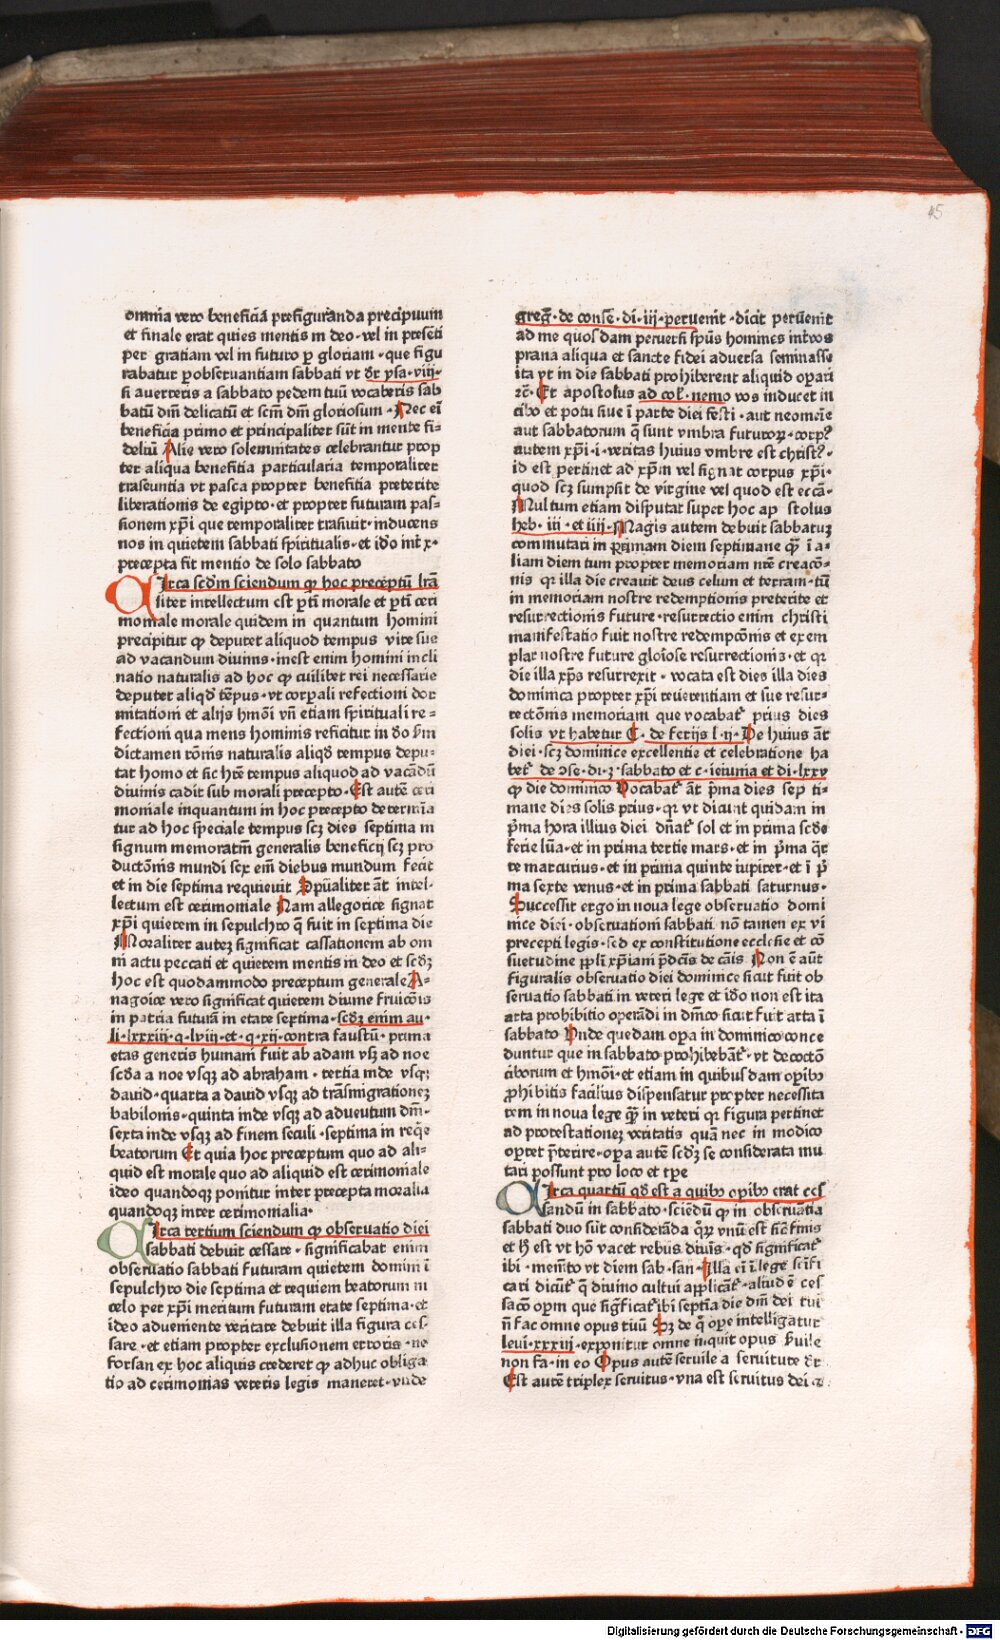 45
omnia vero beneficia prefiguranda precipuum
et finale erat quies mentis in deo·vel in presēti
per gratiam vel in futuro ꝑ gloriam·que figu
rabatur ꝑ obseruantiam sabbati vt dr̄ ysa·viij·
si auerteris a sabbato pedem tuū vocaberis sab
batū dn̄i delicatū et scm̄ dn̄i gloriosum·Nec eī
beneficia primo et principaliter sūt in mente fi-
deliū Alie vero solemnitates celebrantur prop
ter aliqua benefitia particularia temporaliter
traseuntia vt pasca propter benefitia preterite
liberationis de egipto·et propter futuram pas-
sionem xp̄i que temporaliter trāsiuit·inducens
nos in quietem sabbati spiritualis·et ido int̄ x·
precepta fit mentio de solo sabbato
Circa scd̄m sciendum ꝙ hoc preceptū lr̄a
liter intellectum est ꝑtī morale et ꝑtī ceri
moniale morale quidem in quantum homini
precipitur ꝙ deputet aliquod tempus vite sue
ad vacandum diuinis·inest enim homini incli
natio naturalis ad hoc ꝙ cuilibet rei necessarie
deputet aliqd̄ tēpus·vt corꝑali refectioni dor
mitationi et alijs hm̄oi vn̄ etiam spirituali re=
fectioni qua mens hominis reficitur in do s̄m
dictamen rōnis naturalis aliqd̄ tempus depu-
tat homo et sic hr̄e tempus aliquod ad vacādū
diuinis cadit sub morali precepto·Est autē ceri
moniale inquantum in hoc precepto determīa
tur ad hoc speciale tempus scꝫ dies septima in
signum memoratm̄ generalis beneficij scꝫ pro
ductōnis mundi sex em̄ diebus mundum fecit
et in die septima requieuit Spūaliter āt intel-
lectum est cerimoniale Nam allegorice signat
xp̄i quietem in sepulchro q̄ fuit in septima die
Moraliter autez significat cassationem ab om
ni actu peccati et quietem mentis in deo et scd̄ꝫ
hoc est quodammodo preceptum generale A-
nagoice vero significat quietem diuine fruicōis
in patria futurā in etate septima·scdꝫ enim au·
li·lxxxiij·q·lviij·et·q·xij·contra faustū·prima
etas generis humani fuit ab adam vsqꝫ ad noe
scd̄a a noe vsqꝫ ad abraham·tertia inde vsqꝫ
dauid·quarta a dauid vsqꝫ ad trāsmigrationeꝫ
babilonis·quinta inde vsqꝫ ad aduentum dn̄i·
sexta inde vsqꝫ ad finem seculi·septima in reqe
beatorum Et quia hoc preceptum quo ad ali-
quid est morale quo ad aliquid est cerimoniale
ideo quandoqꝫ ponitur inter precepta moralia
quandoqꝫ inter cerimonialia·
Circa tertium sciendum ꝙ obseruatio diei
sabbati debuit cessare·significabat enim
obseruatio sabbati futuram quietem domini ī
sepulchro die septima et requiem beatorum in
celo per xp̄i meritum futuram etate septima·et
ideo adueniente veritate debuit illa figura ces-
sare·et etiam propter exclusionem erroris·ne
forsan ex hoc aliquis crederet ꝙ adhuc obliga
tio ad cerimonias veteris legis maneret·vnde
greg̅·de conse·di·iij·peruenit·dicit peruenit
ad me quosdam peruersi sp̄us homines int̄ vos
praua aliqua et sancte fidei aduersa seminasse
ita vt in die sabbati prohiberent aliquid operari
ꝛc̄·Et apostolus ad col·nemo vos inducet in
cibo et potu siue ī parte diei festi·aut neomeīe
aut sabbatorum q̄ sunt vmbra futuroꝝ·corp?
autem xp̄i·i·veritas huius vmbre est christ?·
id est pertinet ad xp̄m vel signat corpus xp̄i·
quod scꝫ sumpsit de virgine vel quod est ecc̄a·
Multum etiam disputat super hoc ap stolus
heb·iij·et iiij·Magis autem debuit sabbatuꝫ
commutari in primam diem septimane qm̄ ī a-
liam diem tum propter memoriam nr̄e creacō-
nis qr illa die creauit deus celum et terram·tū
in memoriam nostre redemptionis preterite et
resurrectionis future·resurrectio enim christi
manifestatio fuit nostre redempcōnis et exem
plar nostre future gloiose resurrectionis·et qr
die illa xp̄s resurrexit·vocata est dies illa dies
dominica propter xp̄i reuerentiam et sue resur-
rectōnis memoriam que vocabat̄ prius dies
solis vt habetur C·de ferijs l·ij·De huius āt
diei·scꝫ dominice excellentie et celebratione ha
bet̄ de ↄse·di·ꝫ·sabbato et c·ieiunia et di·lxxv
ꝙ die dominico Vocabat̄ āt p̄ma dies sep ti-
mane dies solis prius·qr vt dicunt quidam in
p̄ma hora illius diei dn̄at̄ sol et in prima scd̄e
ferie lūa·et in prima tertie mars·et in p̄ma q̄r
te marcurius·et in prima quinte iupiter·et ī p̄
ma sexte venus·et in prima sabbati saturnus·
Successit ergo in noua lege obseruatio domi
nice diei·obseruationi sabbati nō tamen ex vi
precepti legis·sed ex constitutione ecclesie et cō
suetudine ppl̄i xp̄iani p̄dcis de cāis Non ē aūt
figuralis obseruatio diei dominice sicut fuit ob
seruatio sabbati in veteri lege et ido non est ita
arta prohibitio operādi in dn̄ico sicut fuit arta ī
sabbato Vnde quedam opa in dominico conce
duntur que in sabbato prohibebāt̄·vt decoctō
ciborum et hmōi·et etiam in quibusdam opibꝰ
ꝓhibitis facilius dispensatur propter necessita
tem in noua lege qm̄ in veteri qr figura pertinet
ad protestationeꝫ veritatis quā nec in modico
oportet p̄terire·opera autē scdꝫ se considerata mu
tari possunt pro loco et tpe
Circa quartū qd̄ est a quibꝰ opibꝰ erat ces
sandū in sabbato·sciēdū ꝙ in obseruātia
sabbati duo sūt considerāda q̄ꝝ vnū est sic̄ finis
et h̄ est vt hō vacet rebus diuīs·qd̄ significat̄
ibi·memēto vt diem sab·san·Illa eī ī lege scīfi
cari dicūt̄ q̄ diuino cultui applicāt̄·aliud ē ces
sacō opm̄ que sigīficat̄ ibi septīa die dn̄i dei tui
n̄ fac omne opus tuū Sꝫ de q̄ ope intelligatur
leui·xxxiij·exponitur omne inquit opus s̄uile
non fa·in eo Opus autē seruile a seruitute dr̄
Est autē triplex seruitus·vna est seruitus dei ꝛ
Digitalisierung gefördert durch die Deutsche Forschungsgemeinschaft - DFG